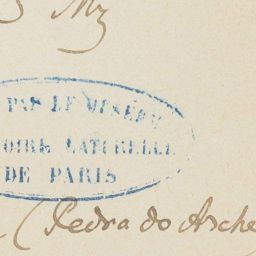 My
PAS LE MUSÉUM
OIRE NATURELLE
DE PARIS
( Pedra do Arche